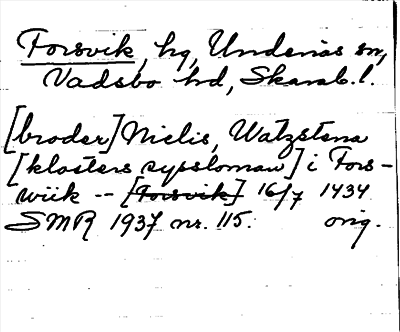 Forsvik, hg, Undenäs sn,
Vadsbo hd, Skarab.l.
[broder] Nielis, Watzstena
[klosters syssloman] i Fors-
wiik -- [Forsvik] 16/7 1434
SMR 1937 nr. 115. orig.